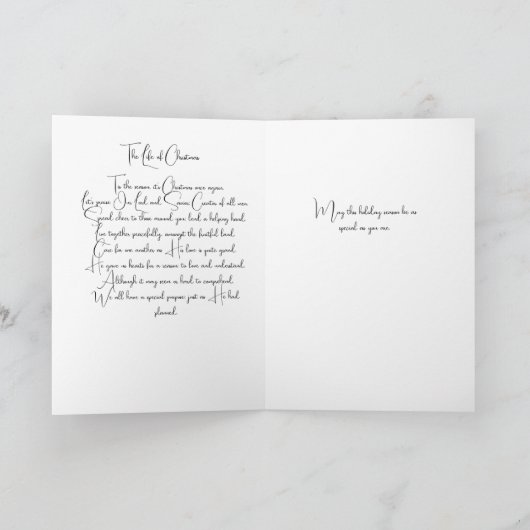 The Life of Christmas
Tis the season, it's Christmas once again.
Let's praise Our Lord and Savior, Creator of all men.
Spread cheer to those around you, lend a helping hand.
Live together peacefully, amongst the fruitful land.
Care for one another as His love is quite grand.
He gave us hearts for a reason to love and understand.
Although it may seem as hard to comprehend.
We all have a special purpose, just as He had
planned.
May this holiday season be as
special as you are.